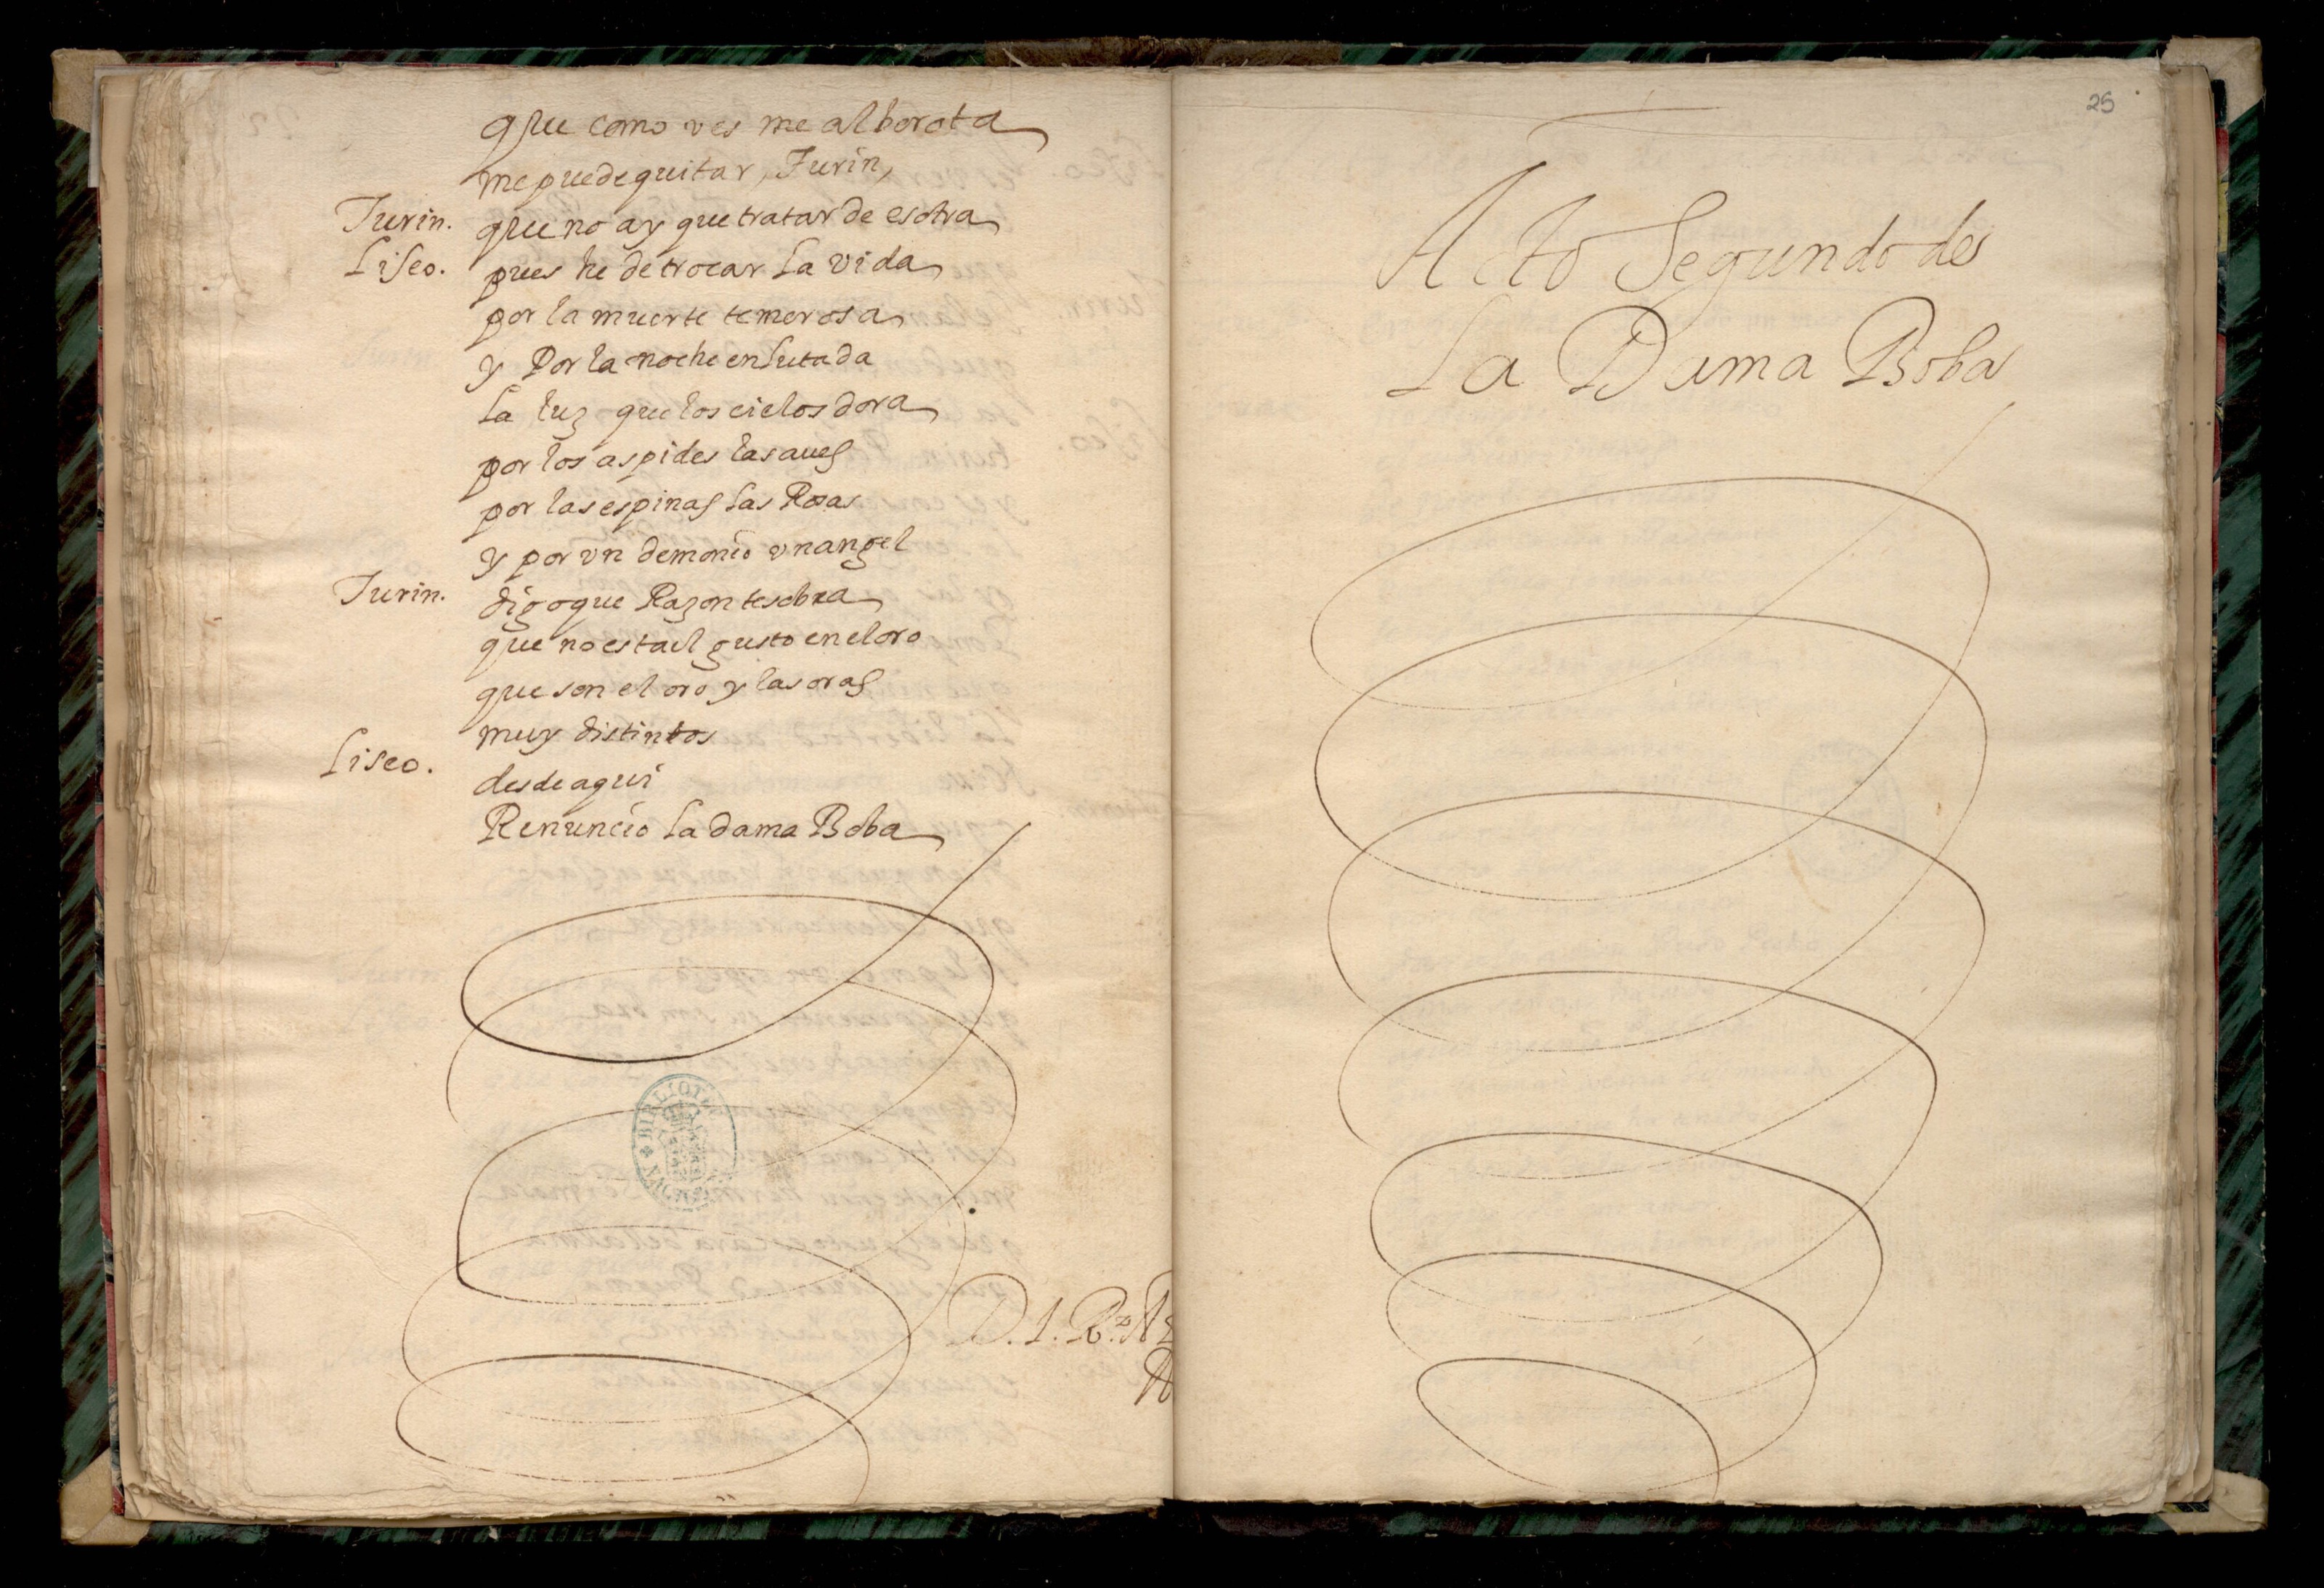 que como ves me alborota
me puede quitar, Turin,
Turin. que no ay que tratar de esotra
Liseo. pues he de trocar la vida
por la muerte temerosa
y Por la noche enlutada
la luz que los cielos dora
por los aspides las aues
por las espinas las Rosas
y por vn demonio vn angel
Turin. digo que Razon te sobra
que no esta el gusto en el oro
que son el oro y las oras
muy distintos
Liseo. desde aqui
Renuncio la dama Boba
BIBLIOTECA NACIONAL
25
Acto Segundo de
La Dama Boba